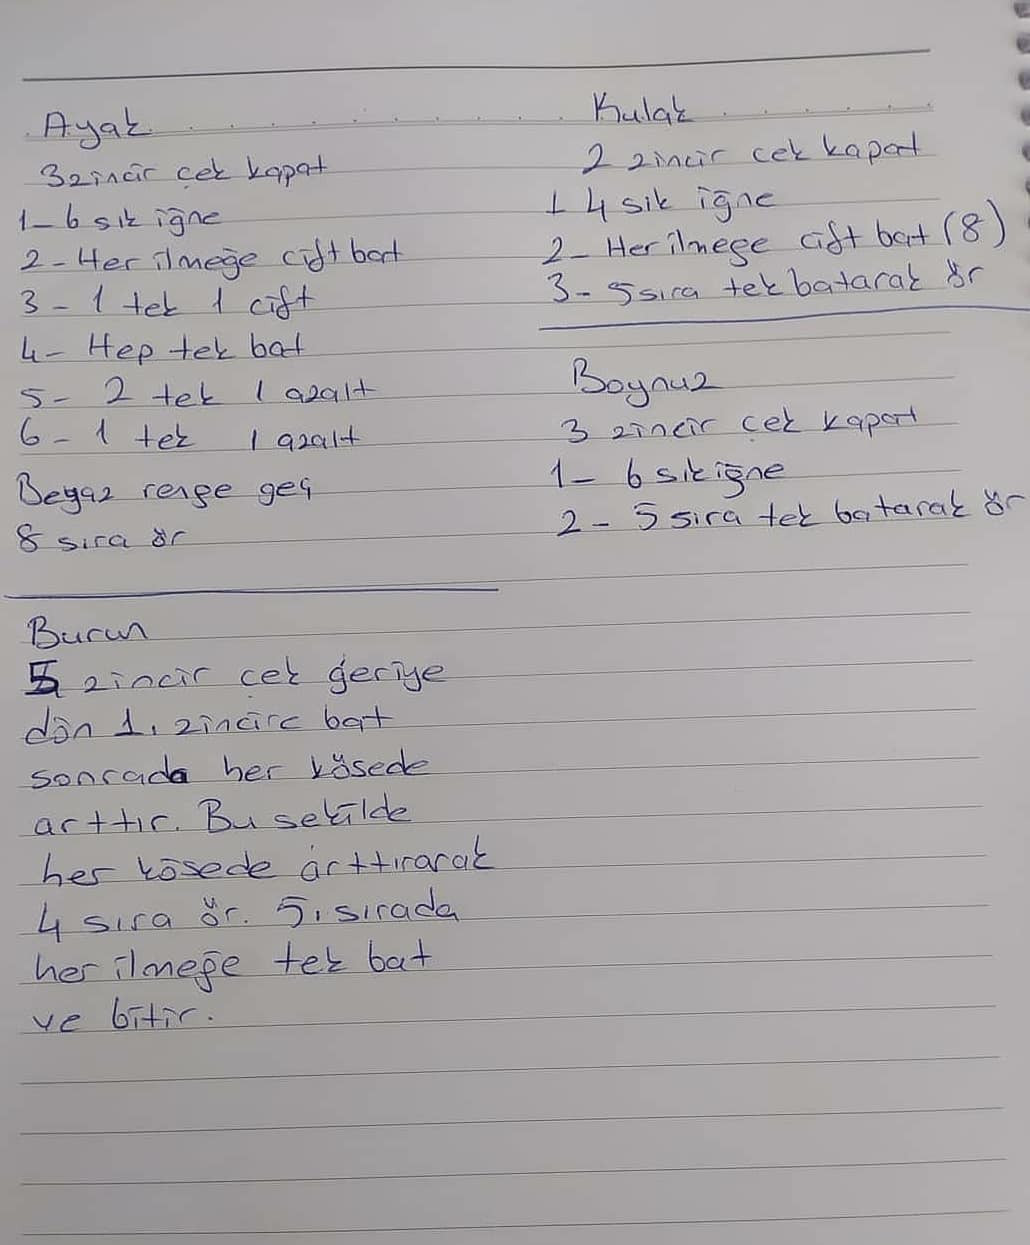 Ayak
3 zincir çek kapat
1- 6 sık iğne
2- Her ilmeğe çift bat
3 - 1 tek 1 çift
4- Hep tek bat
5- 2 tek 1 azalt
6- 1 tek 1 azalt
Beyaz renge geç
8 sıra ör
Kulak
2 zincir çek kapat
1 4 sık iğne
2- Her ilmege çift bat (8)
3- 5 sıra tek batarak ör
Boynuz
3 zincir çek kapat
1- 6 sık iğne
2 - 5 sıra tek batarak ör
Burun
5 zincir çek geriye
dön 1. zincire bat
sonrada her kösede
arttır. Bu sekilde
her kösede arttırarak
4 sıra ör. 5. sırada
her ilmeğe tek bat
ve bitir.